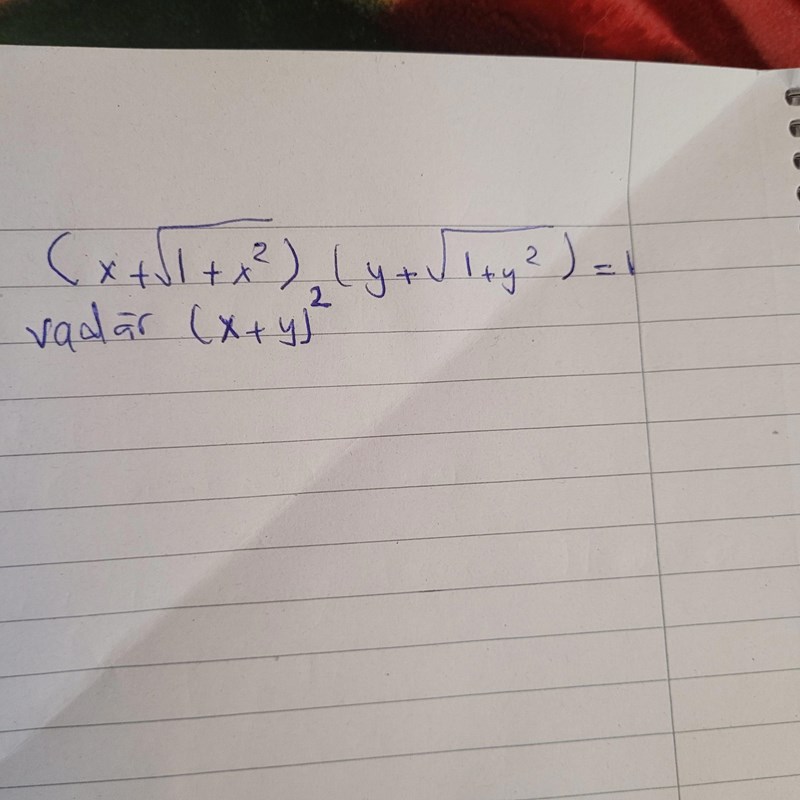 (x+√1+x²) (y+√1+y²) = 1
vad är (x+y)²